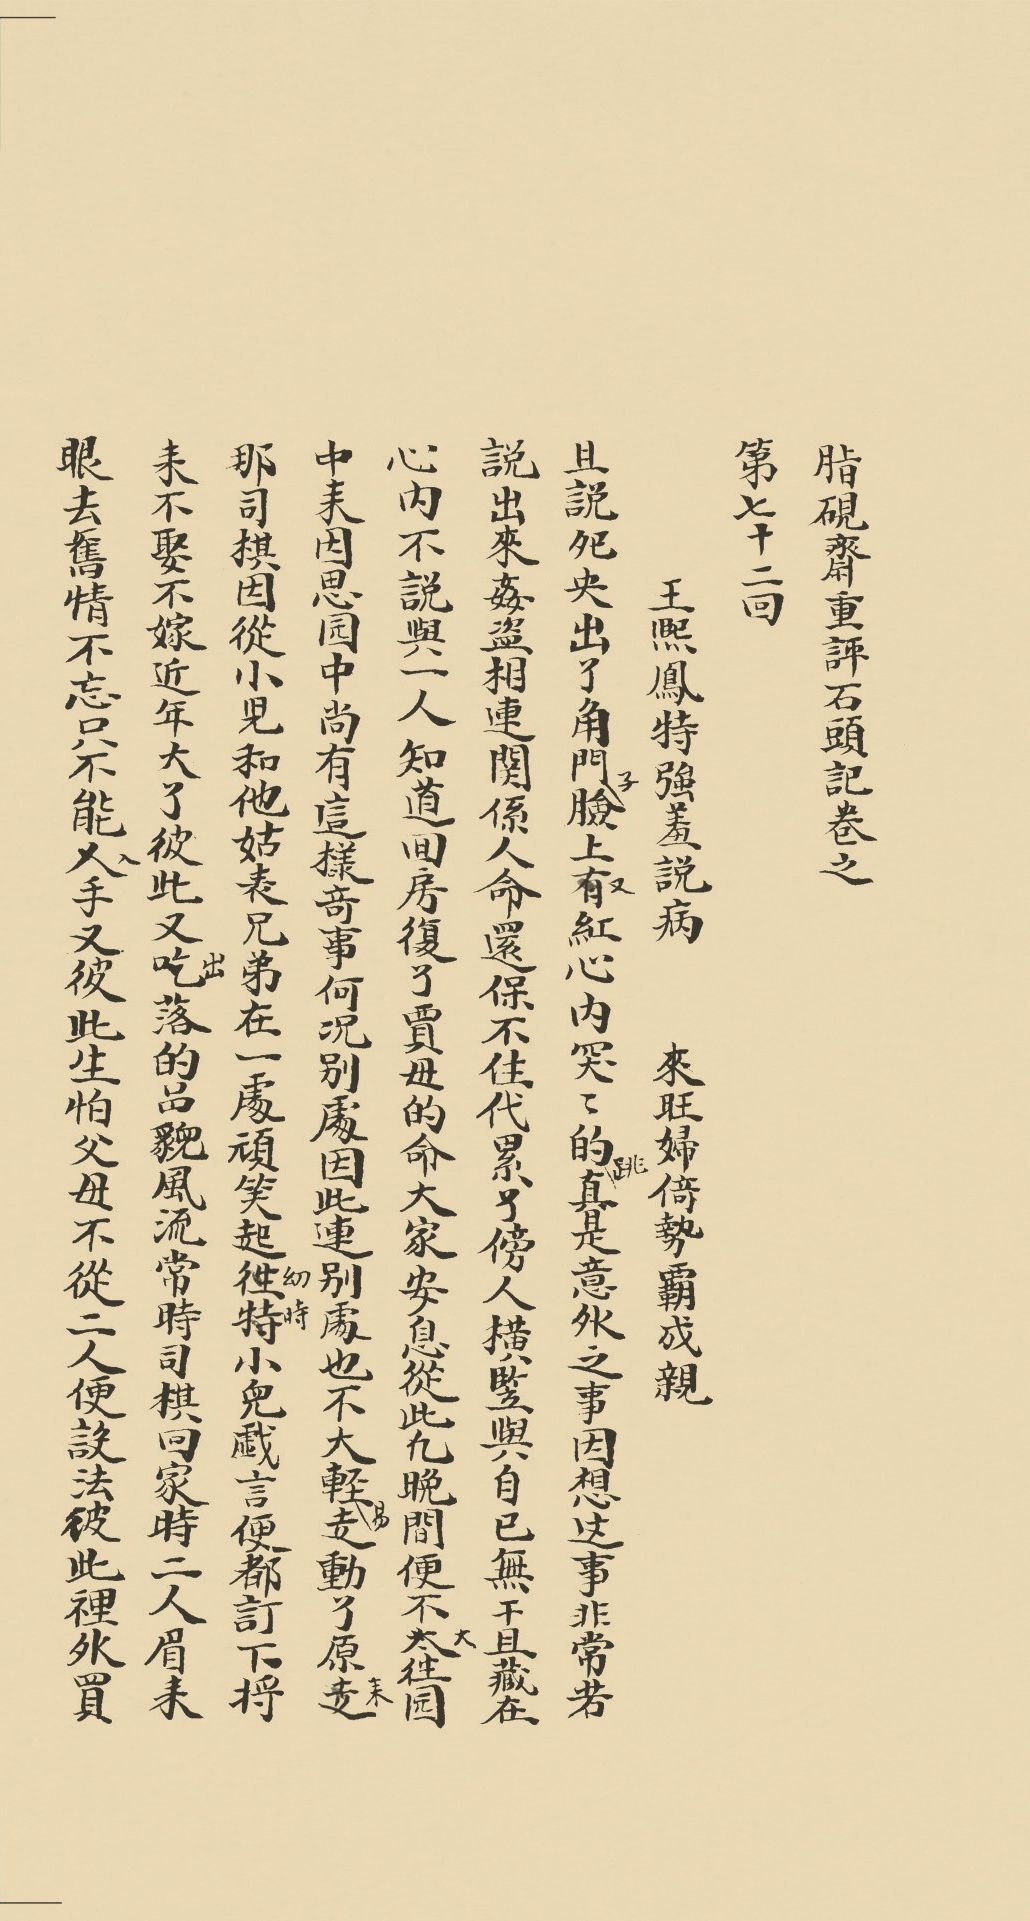 脂硯齋重評石頭記卷之
第七十二回
王熙鳳特強羞説病　來旺婦倚勢霸成親
且説死央出了角門子臉上有又紅心内突〻的跳真是意外之事因想这事非常若
説出來姦盗相連関係人命還保不住代累了傍人横竪與自已無干且藏在
心内不説與一人知道囬房復了賈毋的命大家安息從此凢晚間便不太大徃园
中来因思园中尚有這様竒事何况别處因此連别處也不大軽易走動了原走来
那司棋因從小児和他姑表兄弟在一處頑笑起徃特幼時小兒戯言便都訂下将
来不娶不嫁近年大了彼此又吃出落的品貌風流常時司棋回家時二人眉来
眼去舊情不忘只不能入手又彼此生怕父毋不從二人便設法彼此裡外買